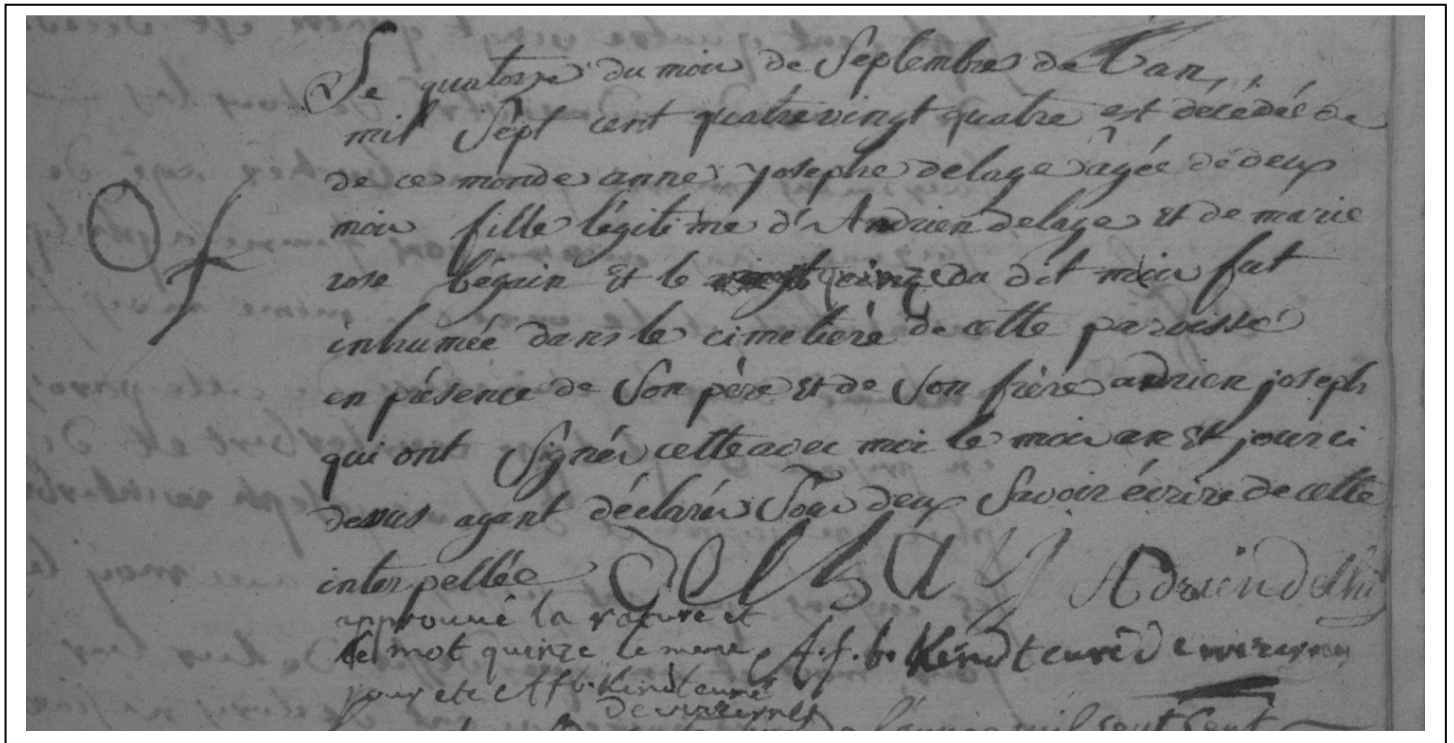 Le quatorze du mois de Septembre de L'an
mil Sept cent quatrevingt quatre est décédée de
de ce monde anne josephe delage âgée de deux
mois fille légitime d'Andrien delage Et de marie
rose bégain Et le quinze du dit mois fut
inhumée dans le cimetière de cette paroisse
en présence de Son père Et de Son frère andrien joseph
qui ont Signés cette avec moi le mois an Et jour ci
dessus ayant déclarés Tous deux Savoir écrire de cette
interpellée
Adrien
approuvé la rature et
le mot quinze le meme A.f.b. curé de
jour etc A f b
de
l'année mil sept Cent